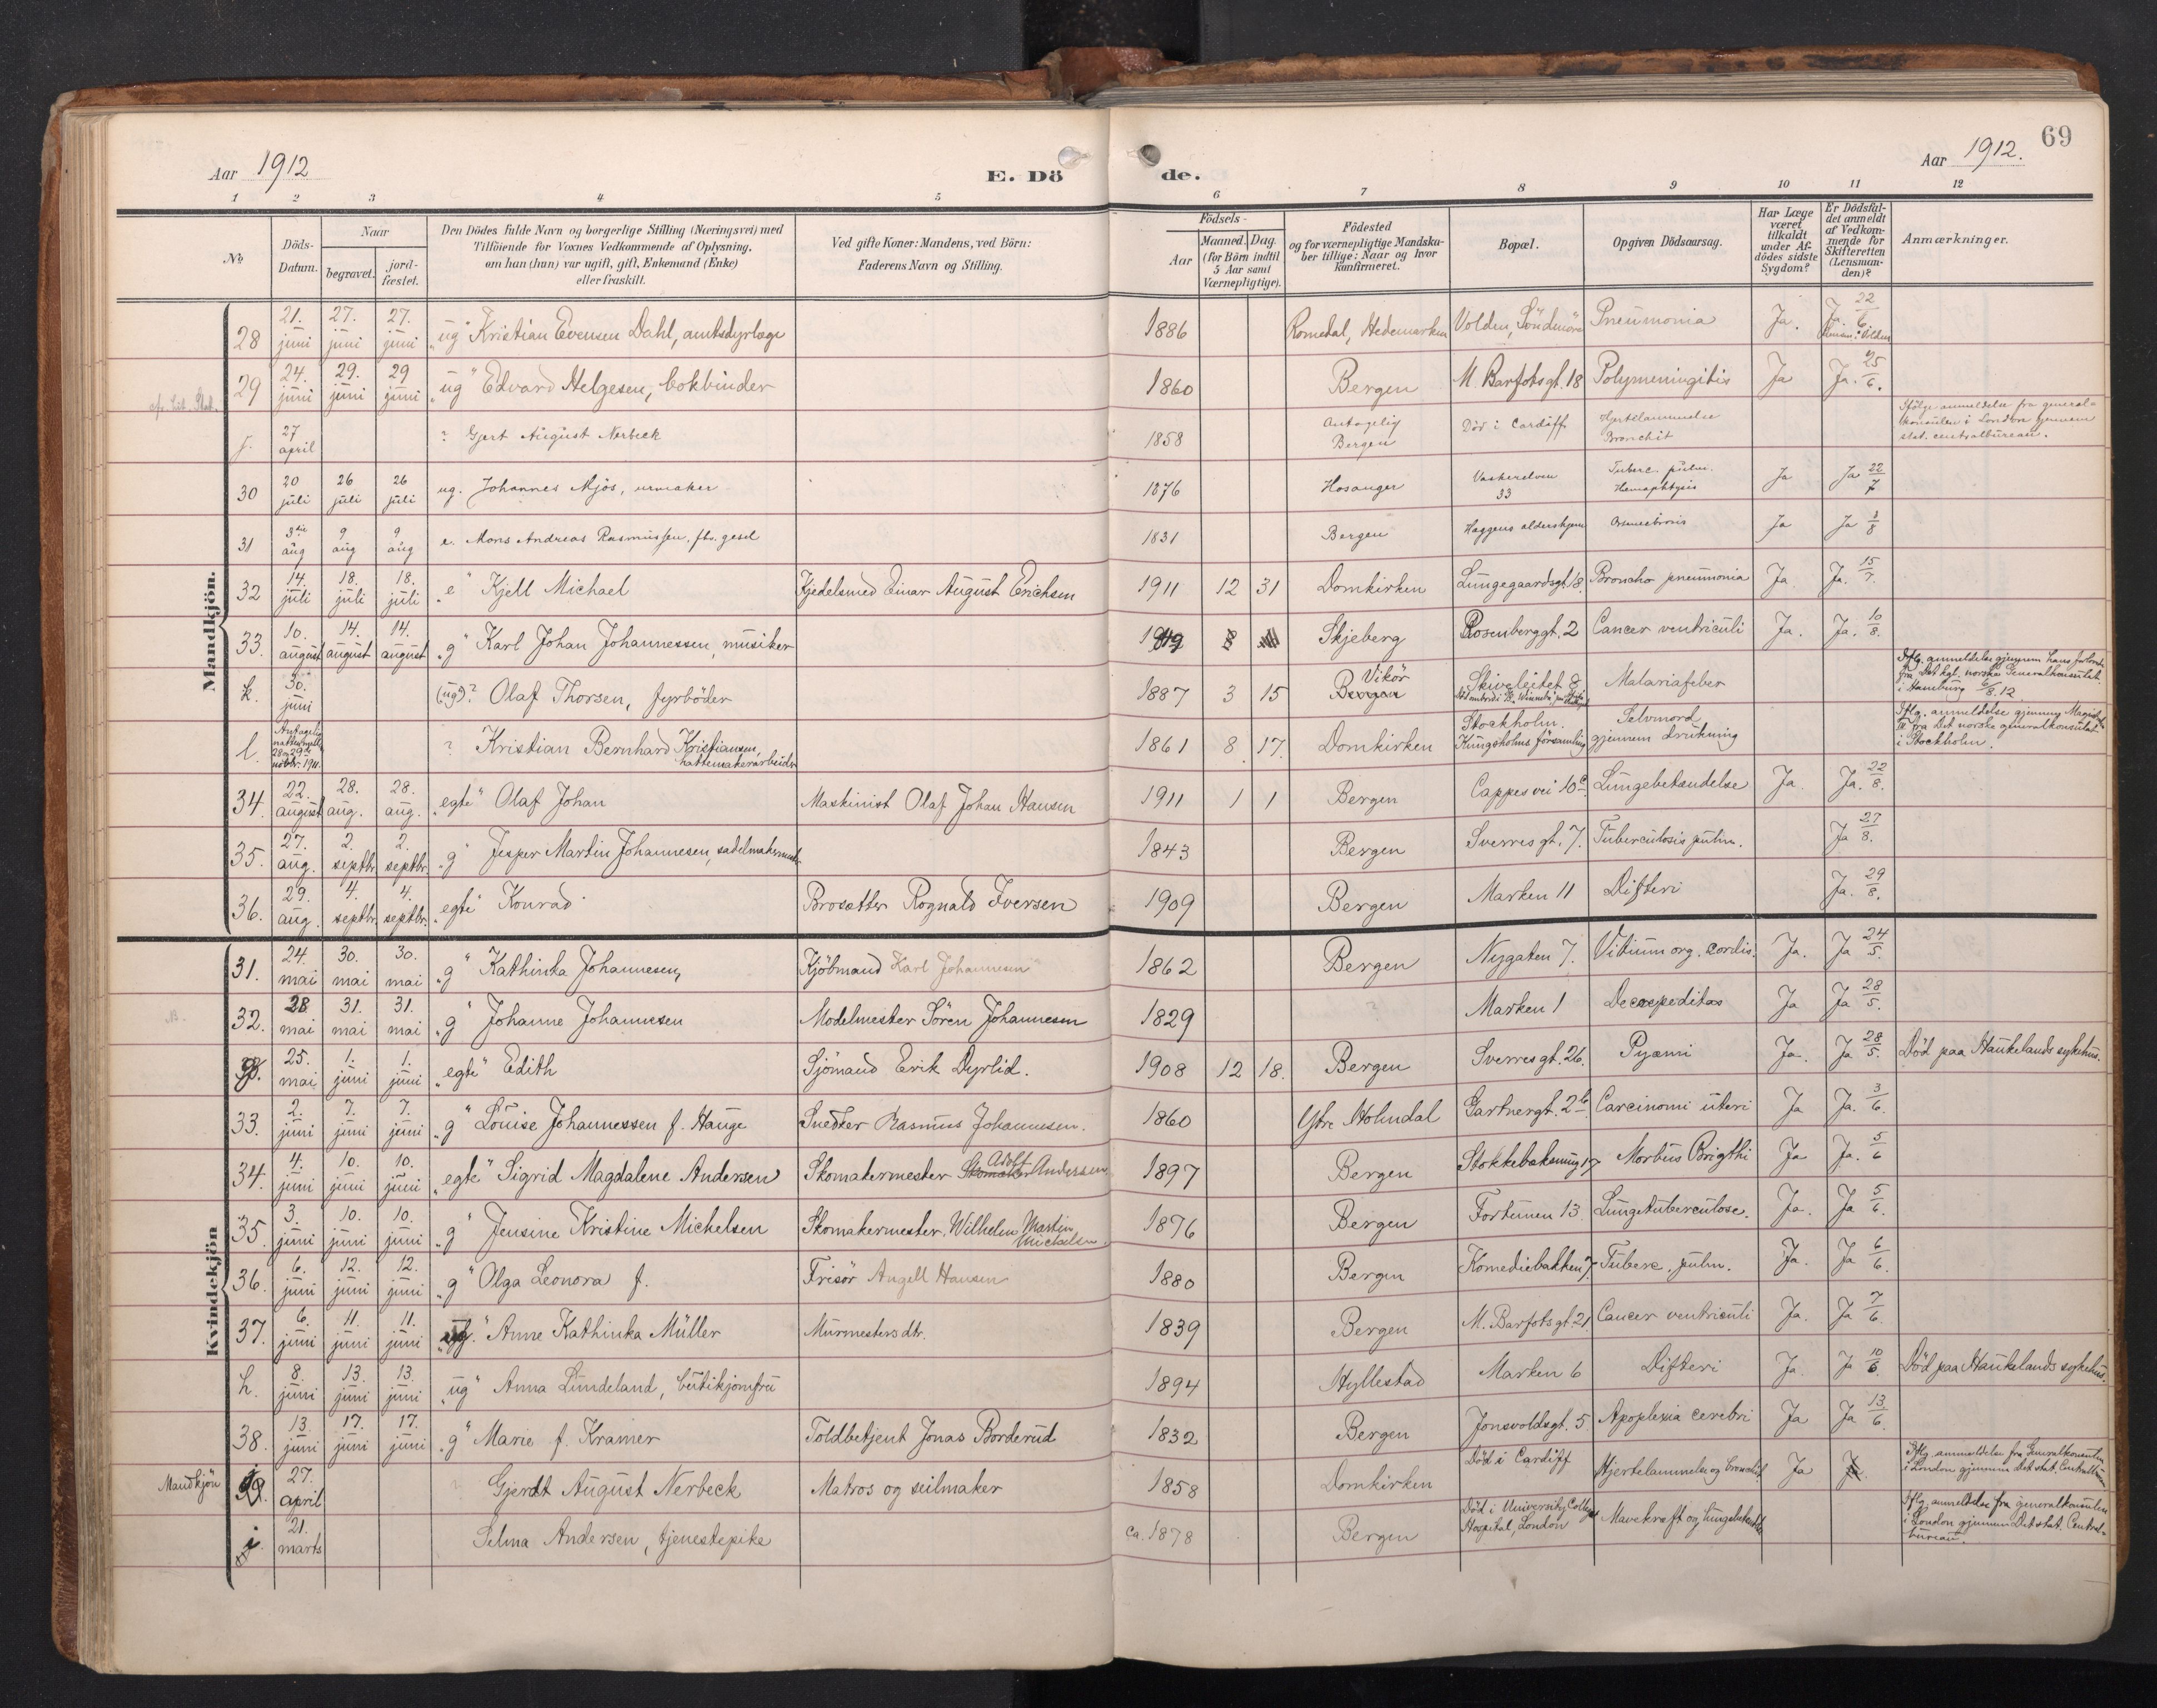 69
Aar 1912
E. Dö de.
Aar 1912.
1 2 3 4 5 6 7 8 9 10 11 12
No. Döds-Datum. Naar begravet. jord-fæstet. Den Dödes fulde Navn og borgerlige Stilling (Næringsvei) med Tilföiende for Voxnes Vedkommende af Oplysning, om han (hun) var ugift, gift, Enkemand (Enke) eller fraskilt. Ved gifte Koner: Mandens, ved Börn: Faderens Navn og Stilling. Födsels- Aar Maaned. Dag. (for Börn indtil 5 Aar samt Værnepligtige). Födested og for værnepligtige Mandskaber tillige: Naar og hvor Konfirmeret. Bopæl. Opgiven Dödsaarsag. Har Læge været tilkaldt under Afdödes sidste Sygdom? Er Dödsfaldet anmeldt af Vedkommende for Skifteretten (Lensmanden)? Anmærkninger.
Mandkjön.
28 21. juni 27. juni 27. juni "ug" Kristian Evensen Dahl, amtsdyrlæge 1886 Romedal, Hedemarken Volden, Söndmöre Pneumonia Ja. Ja. 22/6 Volden
29 24. juni 29. juni 29 juni "ug" Edvard Helgesen, bokbinder 1860 Bergen M. Barfotsgt. 18 Polymeningitis Ja Ja. 25/6.
j. 27 april ? Gjert August Nerbeck 1858 Antagelig Bergen Död i Cardiff Hjertelammelse Bronchit Ifölge anmeldelse fra generalkonsulen i London gjennem stat. centralbureau.
30 20 juli 26 juli 26 juli ug. Johannes Mjös, urmaker 1876 Hosanger Vaskerelven 33 Tuberc. pulm. Hemoptysis Ja Ja 22/7
31 3die aug 9 aug 9 aug e. Mons Andreas Rasmussen, fhv. gesel 1831 Bergen Haggens aldershjem Ja Ja 3/8
32 14. juli 18. juli 18. juli "e" Kjell Michael Kjedelsmed Einar August Erichsen 1911 12 31 Domkirken Lungegaardsgt. 18. Broncho pneumonia Ja. Ja. 15/7.
33. 10. august 14. august 14. august "g" Karl Johan Johannessen, musiker Skjeberg Rosenberggt. 2 Cancer ventriculi Ja. Ja. 10/8.
k. 30. juni (ug?)? Olaf Thorsen, fyrböder 1887 3 15 Vikör Bergen Skiveleitet 8 Malariafeber Iflg. anmeldelse gjennem fra Det kgl. norske Generalkonsulat i Hamburg 6/8.12
l. Antagelig natten mell. 28 og 29de novbr. 1911. ? Kristian Bernhard Kristiansen, hattemakerarbeider 1861 8 17. Domkirken Stockholm. Kungsholms församling Selvmord gjennem drukning Iflg. anmeldelse gjennem fra Det norske generalkonsulat i Stockholm.
34. 22. august 28. aug. 28. aug. "egte" Olaf Johan Maskinist Olaf Johan Hansen 1911 1 1 Bergen Cappesvei 10c. Lungebetændelse Ja. Ja. 22/8.
35. 27. aug. 2. septbr. 2. septbr. "g" Jesper Martin Johannesen, 1843 Bergen Sverresgt. 7. Tuberculosis pulm. Ja 27/8.
36. 29. aug. 4. septbr. 4. septbr. "egte" Konrad Brosætter Rognald Iversen 1909 Bergen Marken 11 Difteri Ja. 29/8.
Kvindekjön
31. 24. mai 30. mai 30. mai "g" Kathinka Johannesen, Kjöbmand Karl Johannesen 1862 Bergen Nygaten 7. Vitium org. cordis. Ja. Ja 24/5.
32. 28 mai 31. mai 31. mai "g" Johanne Johannesen Modelmester Sören Johannesen 1829 ? Marken 1 Ja Ja 28/5.
25. mai 1. juni 1. juni "egte" Edith Sjömand Erik Dyrlid. 1908 12 18. Bergen Sverresgt. 26. Pyæmi Ja. Ja 28/5. Död paa Haukelands sykehus.
33. 2. juni 7. juni 7. juni "g" Louise Johannessen f. Hauge Snedker Rasmus Johannesen. 1860 Ytre Holmdal Gartnergt. 2b Carcinomi uteri Ja Ja. 3/6.
34. 4. juni 10. juni 10. juni "egte" Sigrid Magdalene Andersen Skomakermester Skomaker Adolf Andersen 1897 Bergen Stokkebakeming 17 Morbus Brigthi Ja Ja. 5/6
35. 3. juni 10. juni 10. juni "g" Jensine Kristine Michelsen Skomakermester, Wilhelm Martin Michelsen. 1876 Bergen Fortunen 13. Lungetuberculose. Ja. Ja 5/6.
36. 6. juni 12. juni 12. juni "g" Olga Leonora f. Frisör Angell Hansen 1880 Bergen Komediebakken 7. Tuberc. pulm. Ja. Ja 6/6.
37. 6. juni 11. juni 11. juni "ug." Anne Kathinka Müller Murmesters dtr. 1839 Bergen M. Barfotsgt. 21. Cancer ventriculi Ja. Ja 7/6.
h. 8. juni 13. juni 13. juni "ug" Anna Lundeland, butikjomfru 1894 Hyllestad Marken 6 Difteri Ja. Ja 10/6. Död paa Haukelands sykehus.
38. 13. juni 17. juni 17. juni "g" Marie f. Kramer Toldbetjent Jonas Borderud 1832 Bergen Jonsvoldsgt. 5. Apoplexia cerebri Ja Ja 13/6.
Mandkjön 27. april Gjerdt August Nerbeck Matros og seilmaker 1858 Domkirken Död i Cardiff Hjertelammelse og bronchit Ja Iflg. anmeldelse fra Generalkonsulen i London gjennem Det stat. Centralbureau.
j. 21. marts Selma Andersen, tjenestepike ca. 1878 Bergen Död i University College Hospital, London Mavekræft og lungebetændelse Iflg. anmeldelse fra generalkonsulen i London gjennem Det stat. Centralbureau.